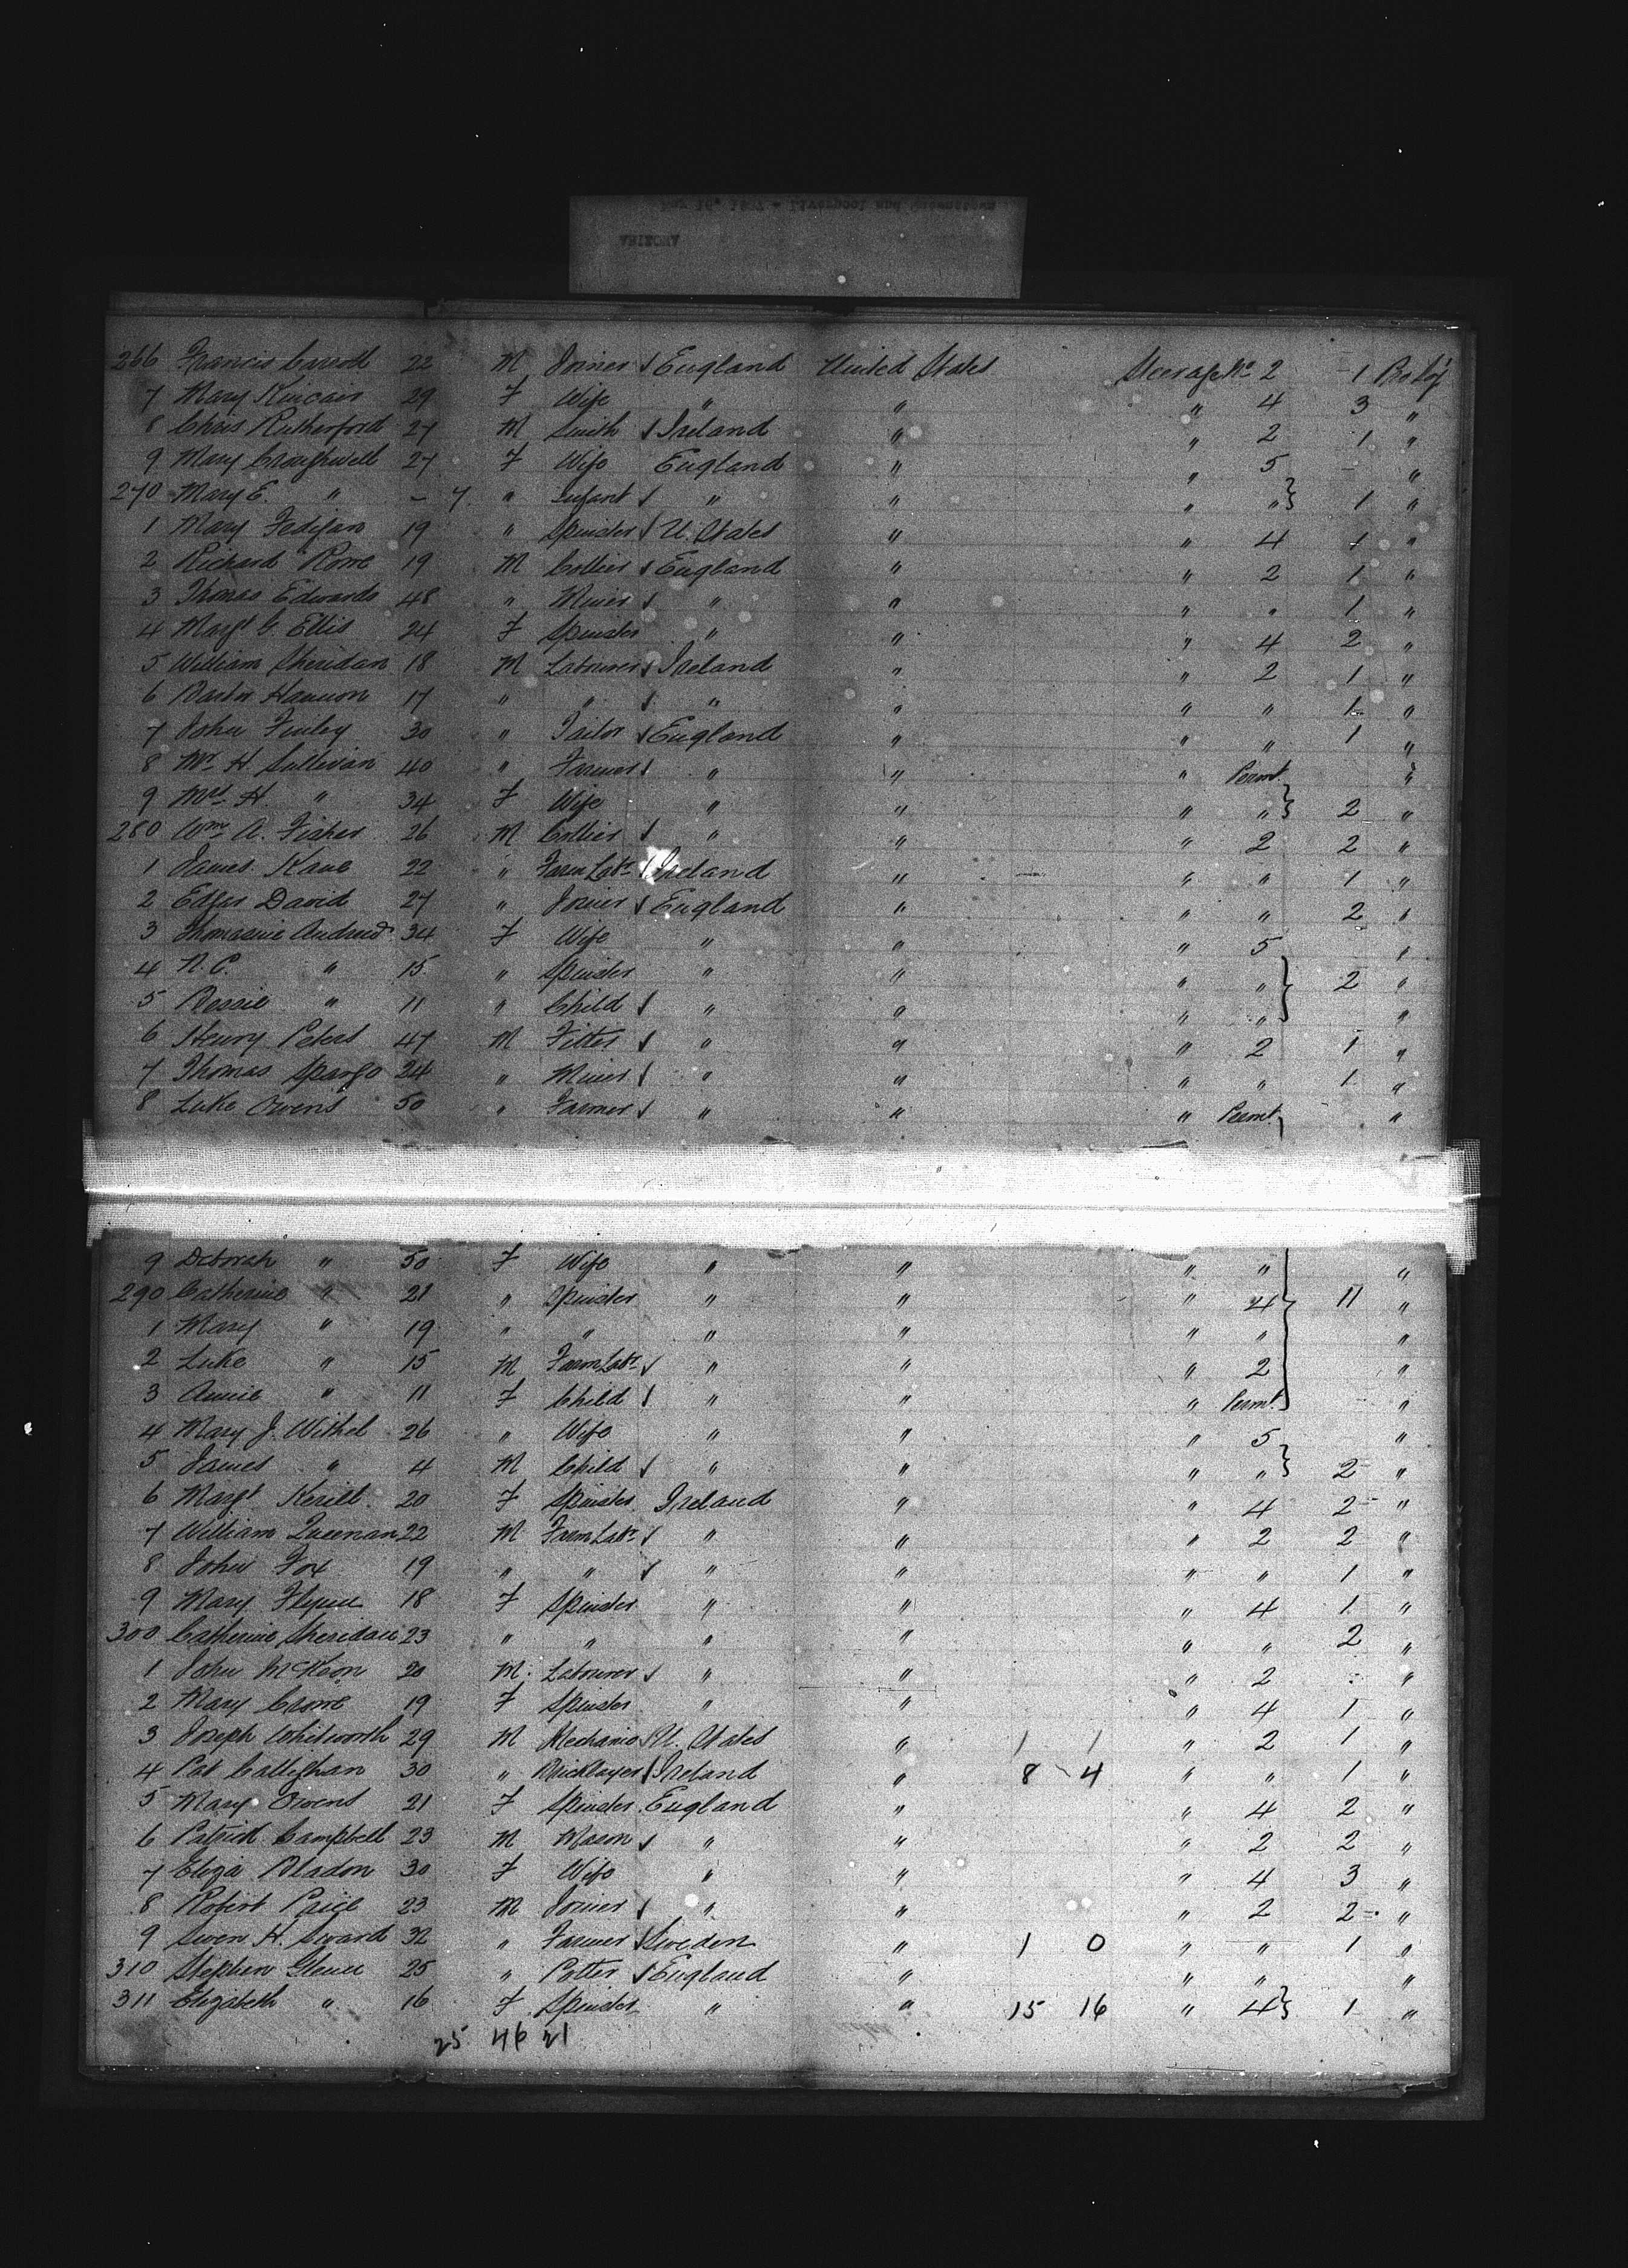 266 Francis Carroll 22 M Joiner England United States Steerage No 2 1
7 Mary Kincair 29 F Wife " " " 4 3 "
8 Chas Rutherford 27 M Smith Ireland " " 2 1 "
9 Mary Croughwell 27 F Wife England " " 5 "
270 Mary E. " - 7 " Infant " " " " 1 "
1 Mary Fadigan 19 " Spinster U. States " " 4 1 "
2 Richard Rowe 19 M Collier England " " 2 1 "
3 Thomas Edwards 48 " Miner " " " " 1 "
4 Margt G. Ellis 24 F Spinster " " " 4 2 "
5 William Sheridan 18 M Labourer Ireland " " 2 1 "
6 Hannon 17 " " " " " " 1 "
7 John Finley 30 " Tailor England " " " 1 "
8 Mr H. Sullivan 40 " Farmer " " " Permt "
9 Mrs H. " 34 F Wife " " " " 2 "
280 Wm A. Fisher 26 M Collier " " " 2 2 "
1 James Kane 22 " Farm Labr Ireland " " " 1 "
2 Edger David 27 " Joiner England " " " 2 "
3 Thomasine 34 F Wife " " " 5 "
4 N. C. " 15 " Spinster " " " " 2 "
5 Bessie " 11 " Child " " " " "
6 Henry Peters 47 M Fitter " " " 2 1 "
7 Thomas Spargo 24 " Miner " " " " 1 "
8 Luke Owens 50 " Farmer " " " Permt "
9 Deborah " 50 F Wife " " " " "
290 Catherine " 21 " Spinster " " " 4 11 "
1 Mary " 19 " " " " " " "
2 Luke " 15 M Farm Labr " " " 2 "
3 Annie " 11 F Child " " " Permt "
4 Mary J. Withel 26 " Wife " " " 5 "
5 James " 4 M Child " " " " 2 "
6 Margt 20 F Spinster Ireland " " 4 2 "
7 William Queenan 22 M Farm Labr " " " 2 2 "
8 John Fox 19 " " " " " " 1 "
9 Mary Flynn 18 F Spinster " " " 4 1 "
300 Catherine Sheridan 23 " " " " " " 2 "
1 John McKeon 20 M Labourer " " " 2 "
2 Mary Crowe 19 F Spinster " " " 4 1 "
3 Joseph Whitworth 29 M Mechanic U. States " 1 1 " 2 1 "
4 Pat Callighan 30 " Bricklayer Ireland " 8 4 " " 1 "
5 Mary Owens 21 F Spinster England " " 4 2 "
6 Patrick Campbell 23 M Mason " " " 2 2 "
7 Eliza Bladon 30 F Wife " " " 4 3 "
8 Robert Price 23 M Joiner " " " 2 2 "
9 Swen H. Sward 32 " Farmer Sweden " 1 0 " " 1 "
310 Stephen 25 " Potter England " " " "
311 Elizabeth " 16 F Spinster " " 15 16 " 4 1 "
25 46 21